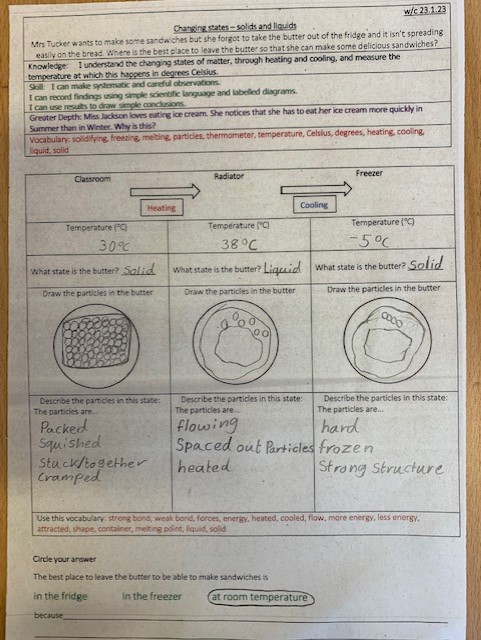 w/c 23.1.23
Changing states – solids and liquids
Mrs Tucker wants to make some sandwiches but she forgot to take the butter out of the fridge and it isn't spreading
easily on the bread. Where is the best place to leave the butter so that she can make some delicious sandwiches?
Knowledge: I understand the changing states of matter, through heating and cooling, and measure the
temperature at which this happens in degrees Celsius.
Skill: I can make systematic and careful observations.
I can record findings using simple scientific language and labelled diagrams.
I can use results to draw simple conclusions.
Greater Depth: Miss Jackson loves eating ice cream. She notices that she has to eat her ice cream more quickly in
Summer than in Winter. Why is this?
Vocabulary: solidifying, freezing, melting, particles, thermometer, temperature, Celsius, degrees, heating, cooling,
liquid, solid
Classroom Radiator Freezer
Heating Cooling
Temperature (°C) Temperature (°C) Temperature (°C)
30°C 38°C -5°C
What state is the butter? Solid What state is the butter? Liquid What state is the butter? Solid
Draw the particles in the butter Draw the particles in the butter Draw the particles in the butter
Describe the particles in this state: Describe the particles in this state: Describe the particles in this state:
The particles are... The particles are... The particles are...
Packed flowing hard
Squished Spaced out Particles frozen
Stuck/together heated Strong Structure
Cramped
Use this vocabulary: strong bond, weak bond, forces, energy, heated, cooled, flow, more energy, less energy,
attracted, shape, container, melting point, liquid, solid
Circle your answer
The best place to leave the butter to be able to make sandwiches is
in the fridge in the freezer at room temperature
because